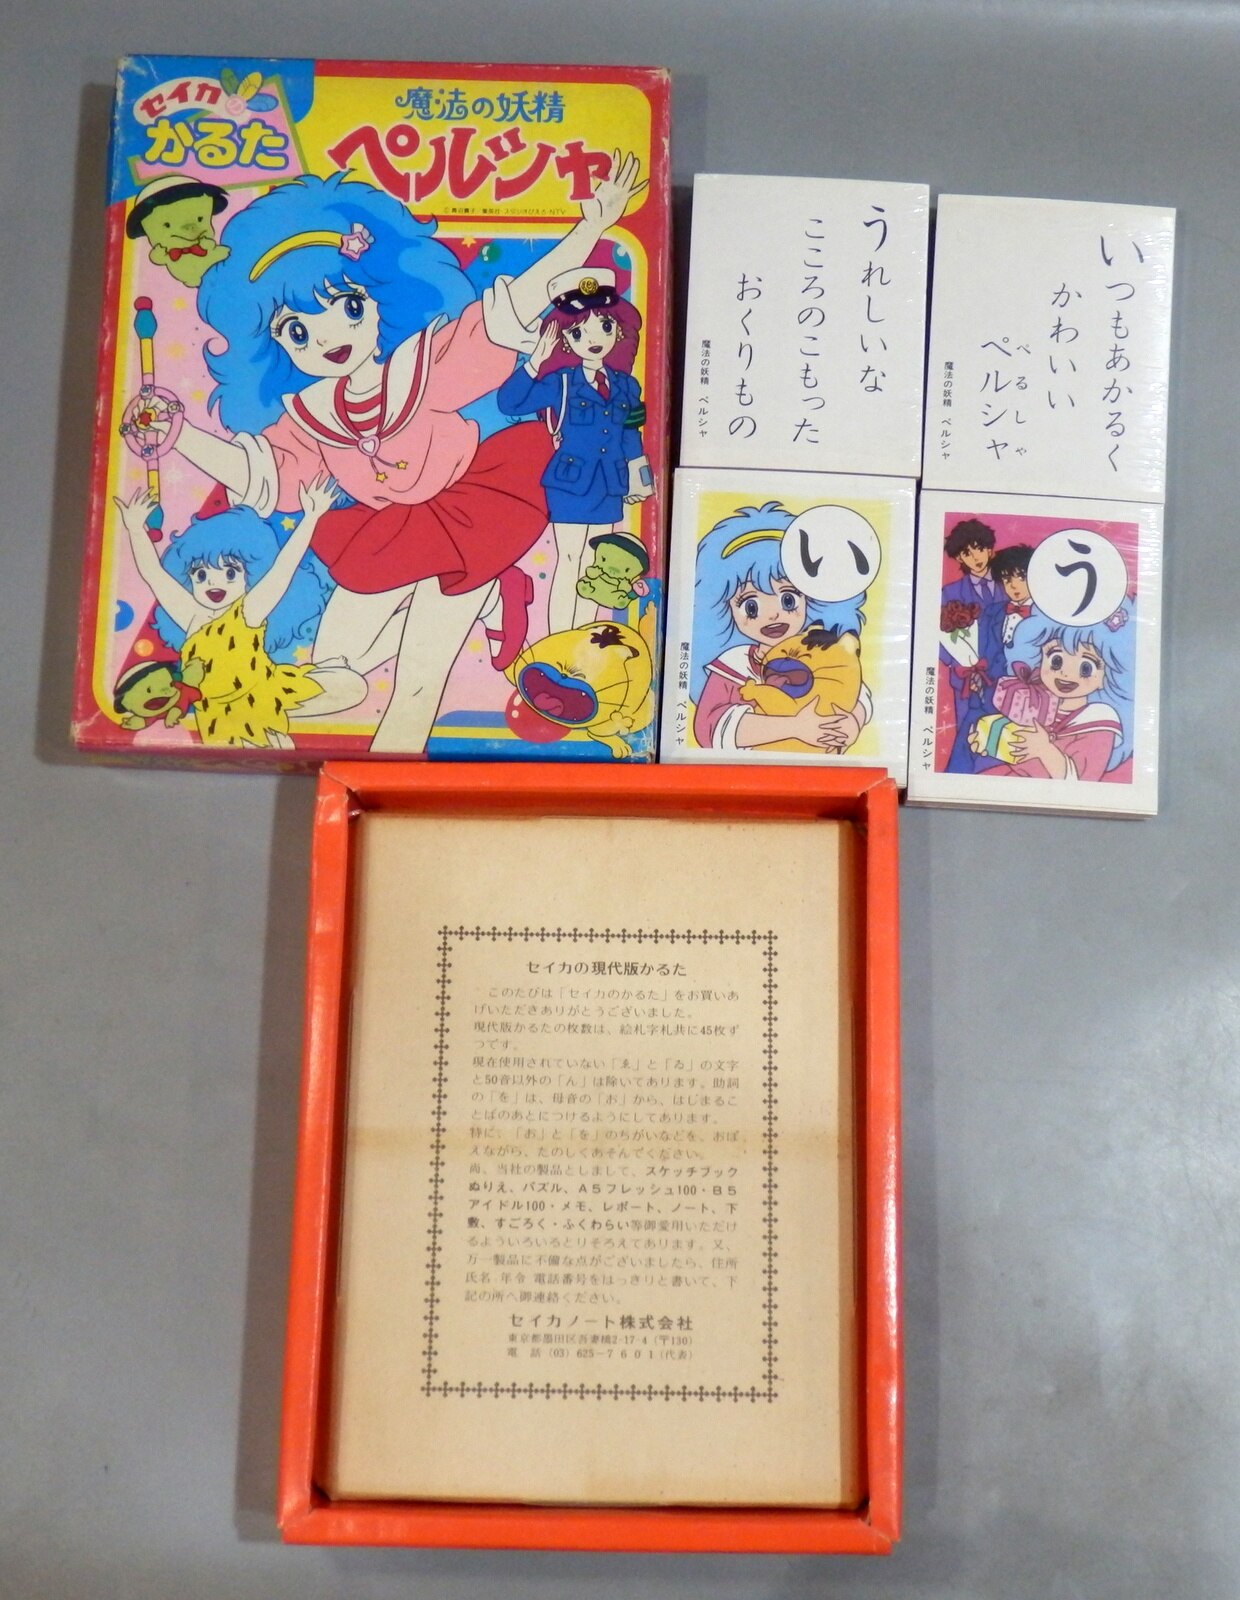 セイカ
かるた
魔法の妖精
ペルシャ
うれしいな
こころのこもった
おくりもの
魔法の妖精 ペルシャ
いつもあかるく
かわいい
ぺるしゃ
ペルシャ
魔法の妖精 ペルシャ
い
魔法の妖精 ペルシャ
う
魔法の妖精 ペルシャ
セイカの現代版かるた
このたびは「セイカのかるた」をお買いあ
げいただきありがとうございました。
現代版かるたの枚数は、絵札字札共に45枚ず
つです。
現在使用されていない「ゑ」と「ゐ」の文字
と50音以外の「ん」は除いてあります。助詞
の「を」は、母音の「お」から、はじまるこ
とばのあとにつけるようにしてあります。
特に、「お」と「を」のちがいなどを、おぼ
えながら、たのしくあそんでください。
尚、当社の製品としまして、スケッチブック
ぬりえ、パズル、A5フレッシュ100・B5
アイドル100・メモ、レポート、ノート、下
敷、すごろく・ふくわらい等御愛用いただけ
るよういろいろとりそろえてあります。又、
万一製品に不備な点がございましたら、住所
氏名 年令 電話番号をはっきりと書いて、下
記の所へ御連絡ください。
セイカノート株式会社
東京都墨田区吾妻橋2-17-4(〒130)
電 話 (03) 625-7601(代表)